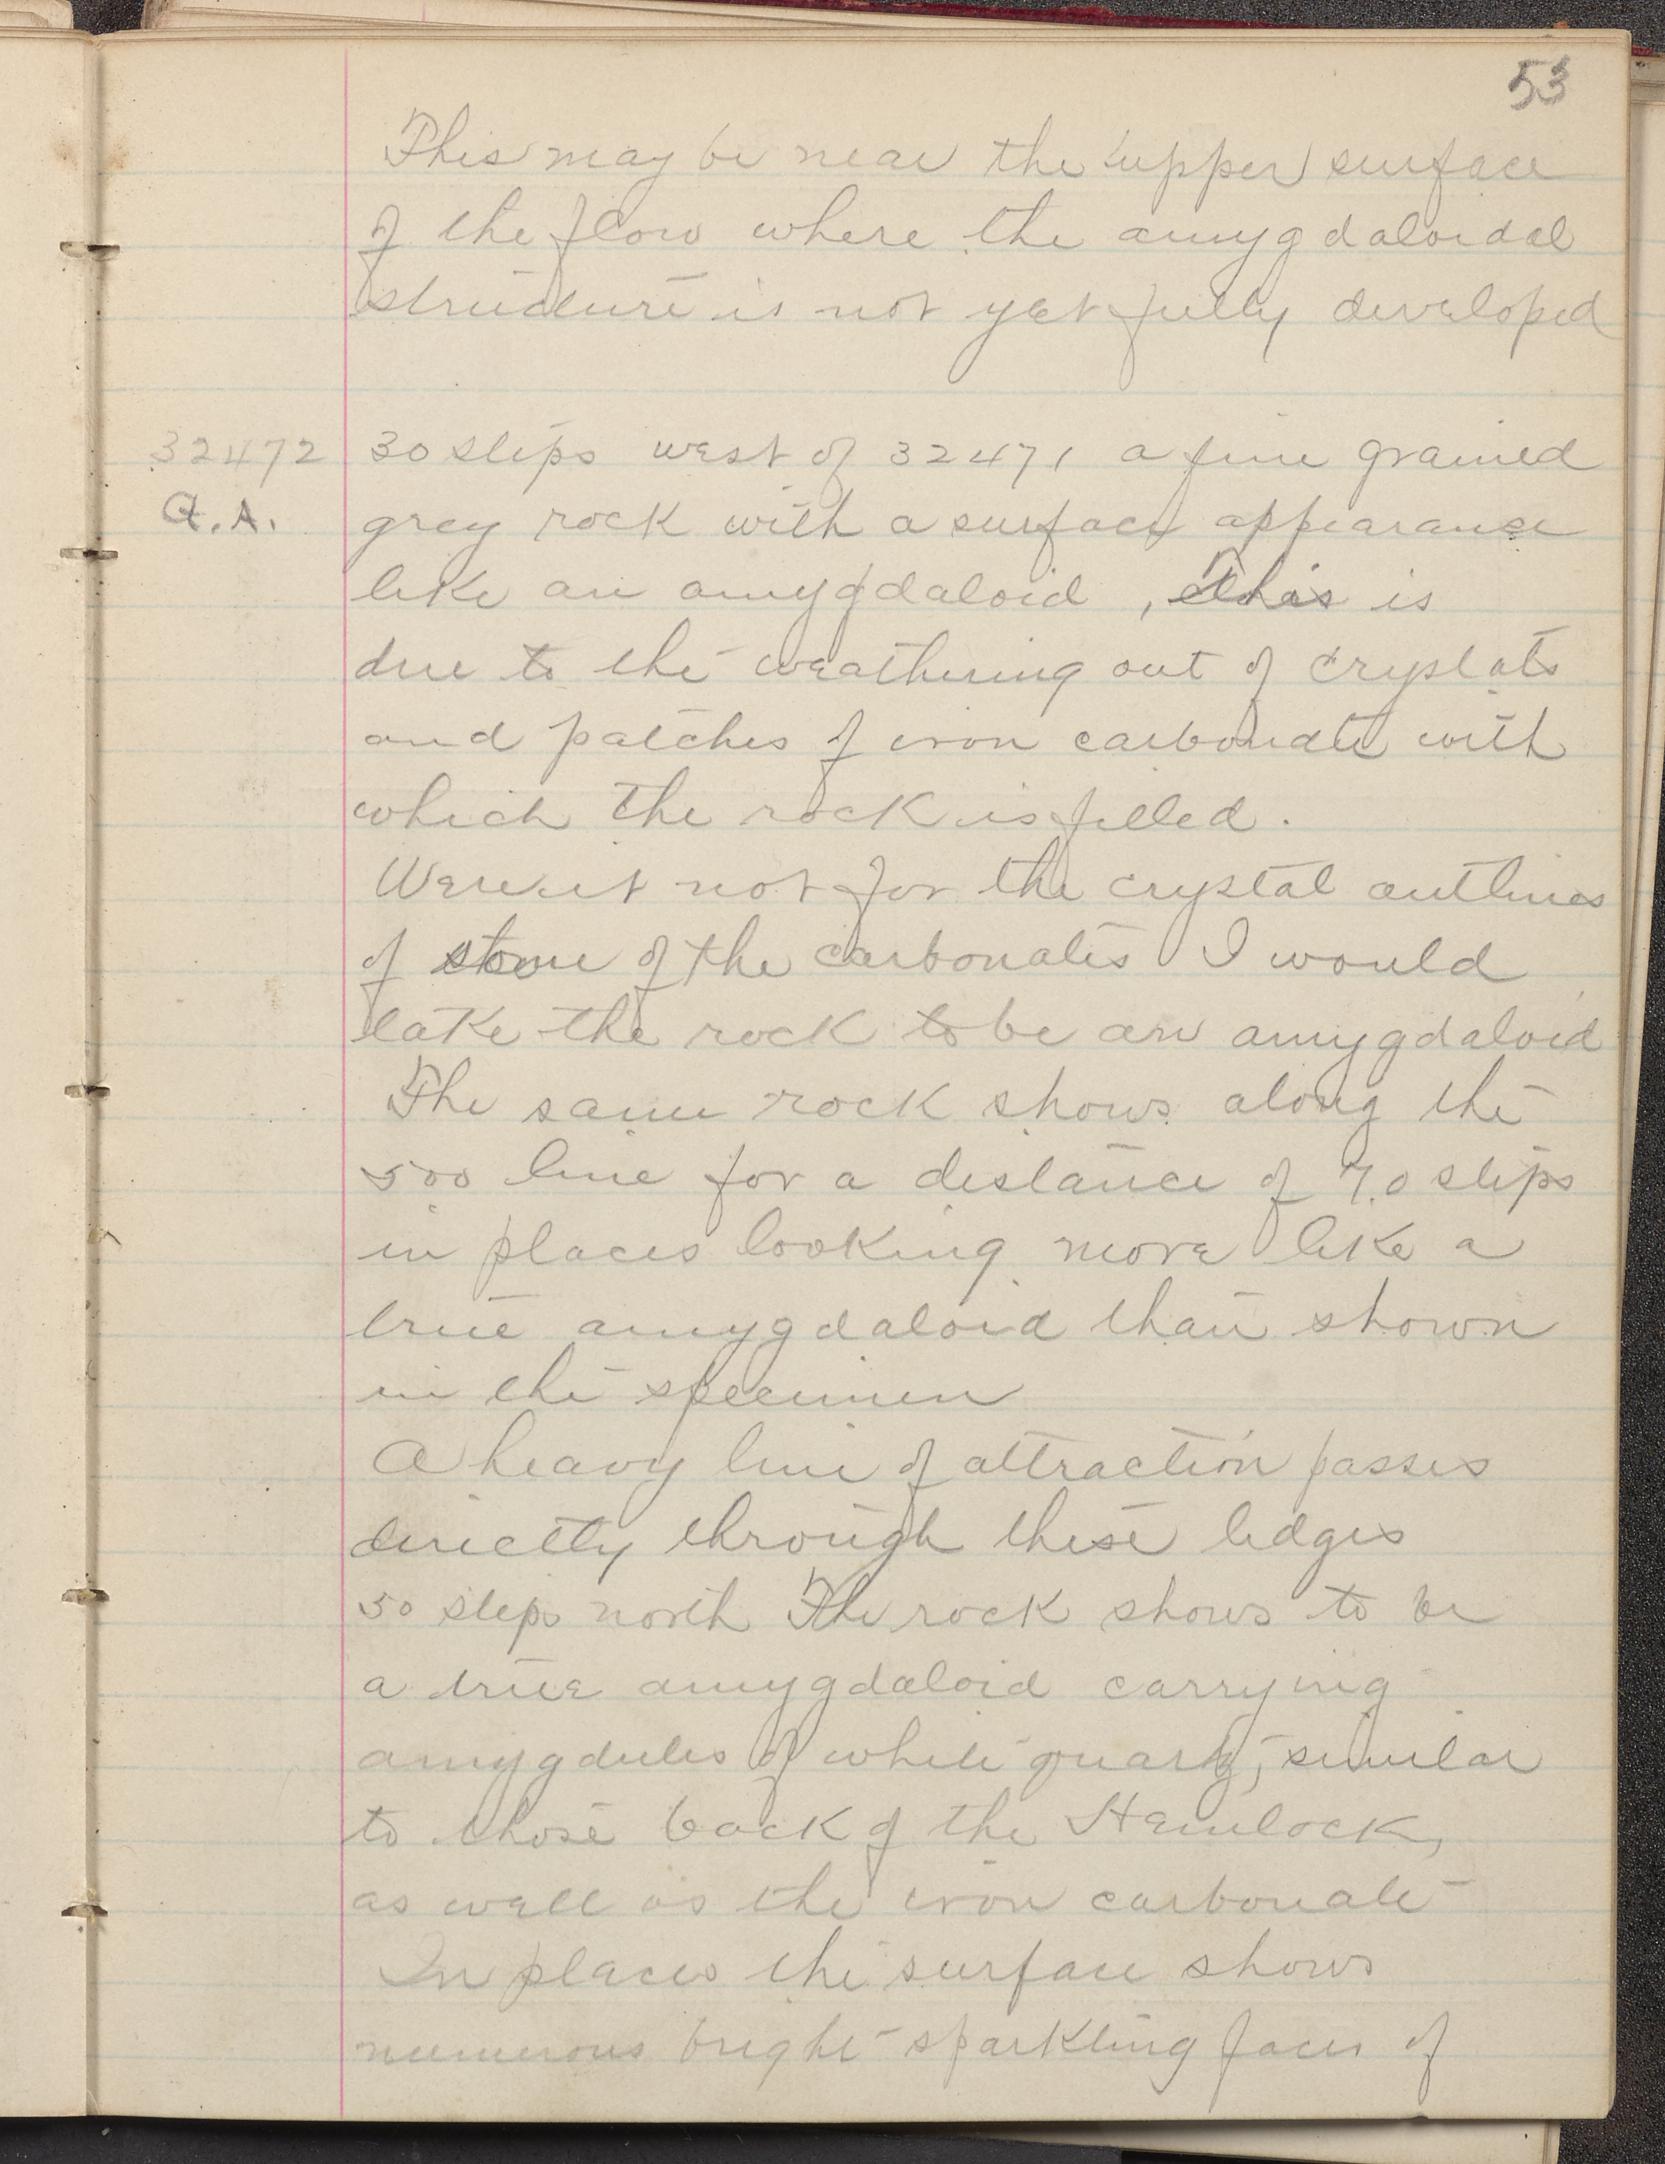 53
This may be near the (upper) surface
of the flow where the amygdaloidal
structure is not yet fully developed
32472 30 steps west of 32471 a fine grained
Q.A. grey rock with a surface appearance
like an amygdaloid, this is
due to the weathering out of crystals
and patches of iron carbonate with
which the rock is filled.
Were it not for the crystal outlines
of some of the carbonates I would
take the rock to be an amygdaloid
The same rock shows along the
500 line for a distance of 70 steps
in places looking more like a
true amygdaloid than shown
in the specimen
A heavy line of attraction passes
directly through these ledges
50 steps north The rock shows to be
a true amygdaloid carrying
amygdules of white quartz, similar
to those back of the Hemlock,
as well as the iron carbonate
In places the surface shows
numerous bright sparkling faces of